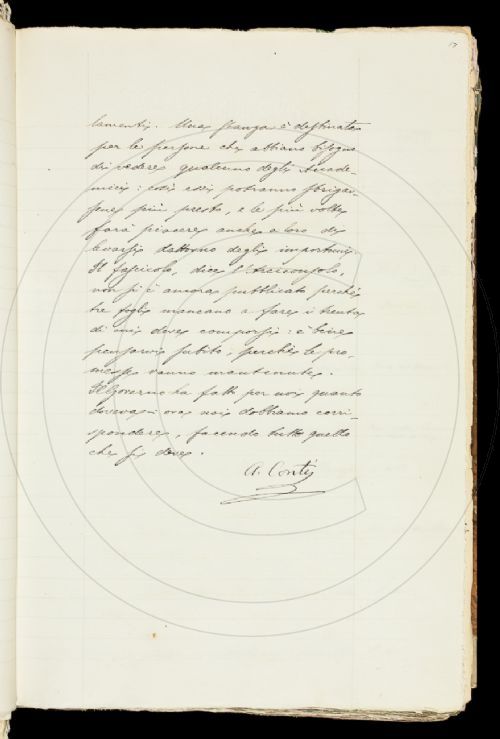 17
lamenti. Una stanza è destinata
per le persone che abbiano bisogno
di vedere qualcuno degli Acade-
mici: così essi potranno sbrigar-
sene più presto, e le più volte
farà piacere anche a loro di
levarsi dattorno degli importuni.
Il fascicolo, dice l'Arciconsolo,
non si è ancora pubblicato perchè
tre fogli mancano a fare i trenta
di cui deve comporsi: è bene
pensarvi subito; perchè le pro-
messe vanno mantenute.
Il Governo ha fatto per noi quanto
doveva: ora noi dobbiamo corri-
spondere, facendo tutto quello
che si deve.
A. Conti